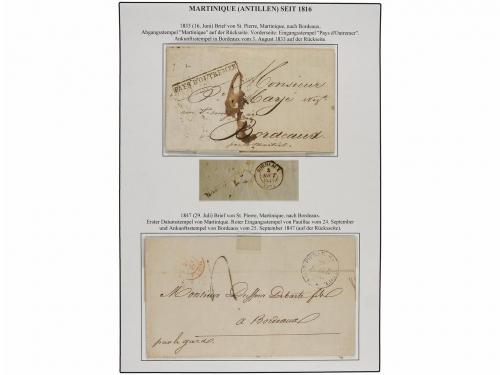 MARTINIQUE (ANTILLEN) SEIT 1816
1833 (16. Juni) Brief von St. Pierre, Martinique, nach Bordeaux.
Abgangsstempel "Martinique" auf der Rückseite. Vorderseite: Eingangsstempel "Pays d'Outremer".
Ankunftsstempel in Bordeaux vom 3. August 1833 auf der Rückseite.
PAYS D'OUTREMER
Monsieur
Bordeaux
BORDEAUX
1847 (29. Juli) Brief von St. Pierre, Martinique, nach Bordeaux.
Erster Datumstempel von Martinique. Roter Eingangsstempel von Pauillac vom 24. September
und Ankunftsstempel von Bordeaux vom 25. September 1847 (auf der Rückseite).
Monsieur
à Bordeaux